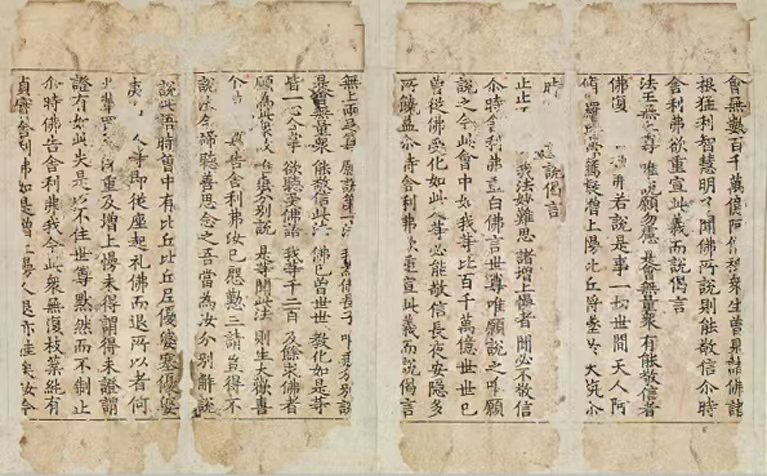 會無數百千萬億阿僧祇衆生曾見諸佛諸
根猛利智慧明了聞佛所說則能敬信尒時
舍利弗欲重宣此義而說偈言
法王無上尊 唯說願勿慮 是會無量衆 有能敬信者
佛復 弗若說是事一切世間天人阿
脩羅 驚疑增上慢比丘將墜於大坑尒
時 說偈言
止止 我法妙難思 諸增上慢者 聞必不敬信
尒時舍利弗重白佛言世尊唯願說之唯願
說之今此會中如我等比百千萬億世世已
曾從佛受化如此人等必能敬信長夜安隱多
所饒益尒時舍利弗欲重宣此義而說偈言
無上兩足尊 願說第一法 我為佛長子 唯垂分別說
是會無量衆 能敬信此法 佛已曾世世 教化如是等
皆一心合掌 欲聽受佛語 我等千二百 及餘求佛者
願為此衆故 唯垂分別說 是等聞此法 則生大歡喜
尒 告舍利弗汝已慇懃三請豈得不
說汝今諦聽善思念之吾當為汝分別解說
說此語時會中有比丘比丘尼優婆塞優婆
夷 人等即從座起礼佛而退所以者何
此輩罪 深重及增上慢未得謂得未證謂
證有如此失是以不住世尊默然而不制止
尒時佛告舍利弗我今此衆無復枝葉純有
貞實舍利弗如是增上慢人退亦佳矣汝今